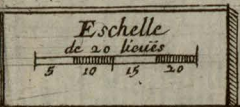 Eschelle
de 20 lieuës
5 10 15 20